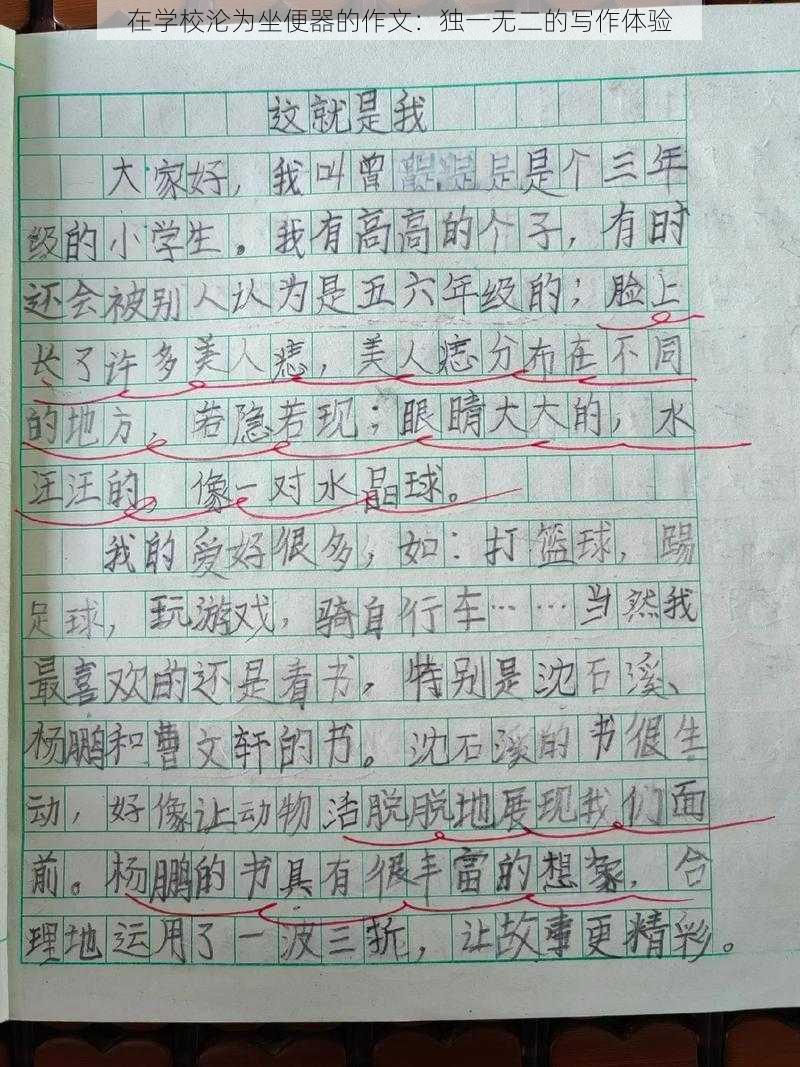 在学校沦为坐便器的作文：独一无二的写作体验
这就是我
大家好，我叫曾是个三年
级的小学生。我有高高的个子，有时
还会被别人认为是五六年级的；脸上
长了许多美人痣，美人痣分布在不同
的地方，若隐若现；眼睛大大的，水
汪汪的，像一对水晶球。
我的爱好很多，如：打篮球，踢
足球，玩游戏，骑自行车……当然我
最喜欢的还是看书，特别是沈石溪、
杨鹏和曹文轩的书。沈石溪的书很生
动，好像让动物活脱脱地展现我们面
前。杨鹏的书具有很丰富的想象，合
理地运用了一波三折，让故事更精彩。